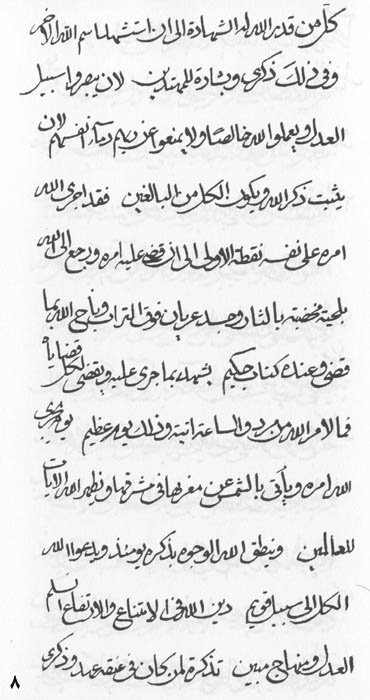 كل من قدر الله له الشهادة الى ان استشهد باسم الله الاخر
وفى ذلك ذكرى وبشارة للمهتدين لان يبصروا سبيل
العدل ويعملوا لله خالصا ولا يمنعوا عن ربهم دماء انفسهم لان
يثبت ذكر الله ويكون الكل من البالغين فقد اجرى الله
امره على نفسه نقطة الاولى الى ان قضى عليه امره ورجع الى الله
بلحية مخضبة بالثار وجسد عريان فوق التراب وتاج الله بما
قضى وعنده كتاب حكيم يشهد بما جرى عليه ويقضى لكل قضايا
فما لامر الله من مرد والساعة اتية وذلك يوم عظيم يوم يجرى
الله امره وياتى بالشمس عن مغربها فى مشرقها ويظهر الله الايات
للعالمين وينطق الله الوجوه بذكره يومئذ ويدعوا الله
الكل الى سبيل قويم دين الله فى الامتناع والارتفاع
العدل ومنهاج مبين تذكرة لمن كان فى عنقه عهد وذكرى
٨